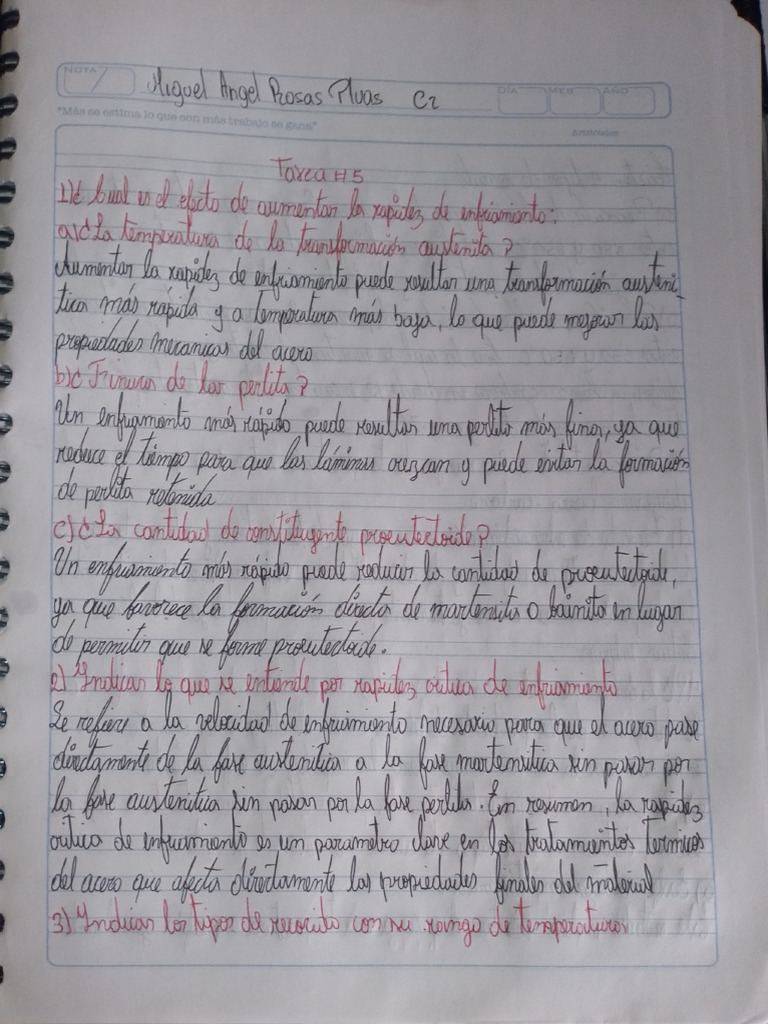 NOTA
Miguel Angel Rosas Pluas C2
DÍA MES AÑO
"Más se estima lo que con más trabajo se gana"
Aristóteles
Tarea #5
1) ¿Cual es el efecto de aumentar la rapidez de enfriamiento:
a) ¿La temperatura de la transformación austenita?
Aumentar la rapidez de enfriamiento puede resultar una transformación austeni-
tica más rápida y a temperatura más baja, lo que puede mejorar las
propiedades mecanicas del acero
b) ¿Finura de las perlita?
Un enfriamiento más rápido puede resultar una perlita más fina, ya que
reduce el tiempo para que las láminas crezcan y puede evitar la formación
de perlita retenida
c) ¿La cantidad de constituyente proeutectoide?
Un enfriamiento más rápido puede reducir la cantidad de proeutectoide,
ya que favorece la formación directa de martensita o bainita en lugar
de permitir que se forme proeutectoide.
2) Indicar lo que se entiende por rapidez critica de enfriamiento
Se refiere a la velocidad de enfriamiento necesario para que el acero pase
directamente de la fase austenitica a la fase martensitica sin pasar por
la fase austenitica sin pasar por la fase perlita. En resumen, la rapidez
critica de enfriamiento es un parametro clave en los tratamientos termicos
del acero que afecta directamente las propiedades finales del material
3) Indicar los tipos de recocido con su rango de temperaturas